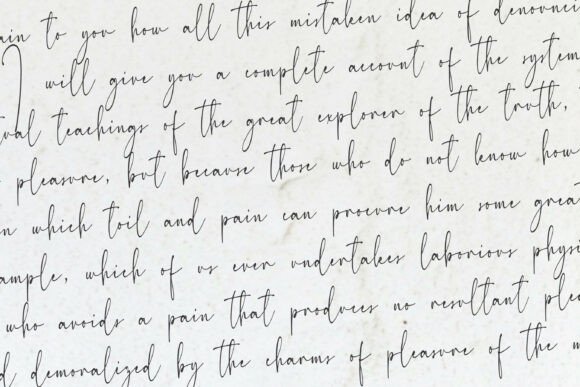 ain to you how all this mistaken idea of denounci
I will give you a complete account of the system
tual teachings of the great explorer of the truth,
pleasure, but because those who do not know how
in which toil and pain can procure him some great
ample, which of us ever undertakes laborious physi
who avoids a pain that produces no resultant plea
d demoralized by the charms of pleasure of the m